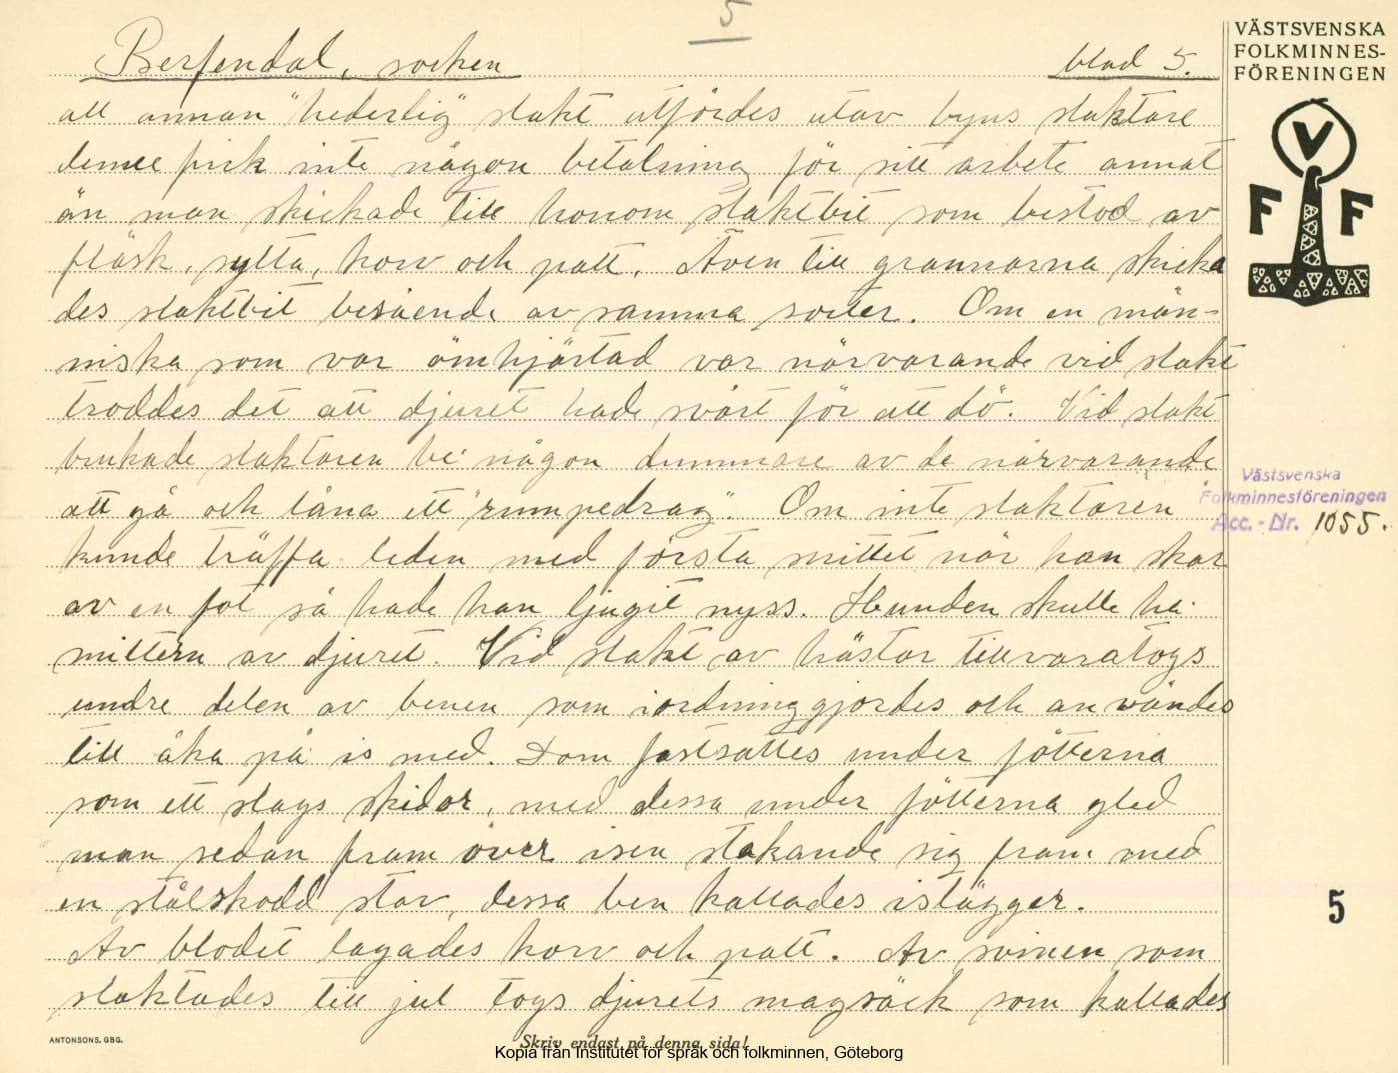 5
Berfendal, socken
blad 5.
VÄSTSVENSKA
FOLKMINNES-
FÖRENINGEN
V
F F
all annan "hederlig" slakt utfördes utav byns slaktare
denne fick inte någon betalning för sitt arbete annat
än man skickade till honom slaktbit som bestod av
fläsk, sylta, korv och palt. Även till grannarna skicka
des slaktbit besående av samma sorter. Om en män-
niska som var ömhjärtad var närvarande vid slakt
troddes det att djuret hade svårt för att dö. Vid slakt
brukade slaktaren be någon dummare av de närvarande
att gå och låna ett "rumpedrag". Om inte slaktaren
kunde träffa leden med första snittet när han skar
av en fot så hade han ljugit nyss. Hunden skulle ha
mittern av djuret. Vid slakt av hästar tillvaratogs
undre delen av benen som iordninggjordes och användes
till åka på is med. Dom fastsattes under fötterna
som ett slags skidor, med dessa under fötterna gled
man sedan fram över isen stakande sig fram med
en stålskodd stav, dessa ben kallades isläggar.
Av blodet lagades korv och palt. Av svinen som
slaktades till jul togs djurets magsäck som kallades
Västsvenska
Folkminnesföreningen
Acc.-Nr. 1055.
5
ANTONSONS. GBG.
Skriv endast på denna sida!
Kopia från Institutet för språk och folkminnen, Göteborg